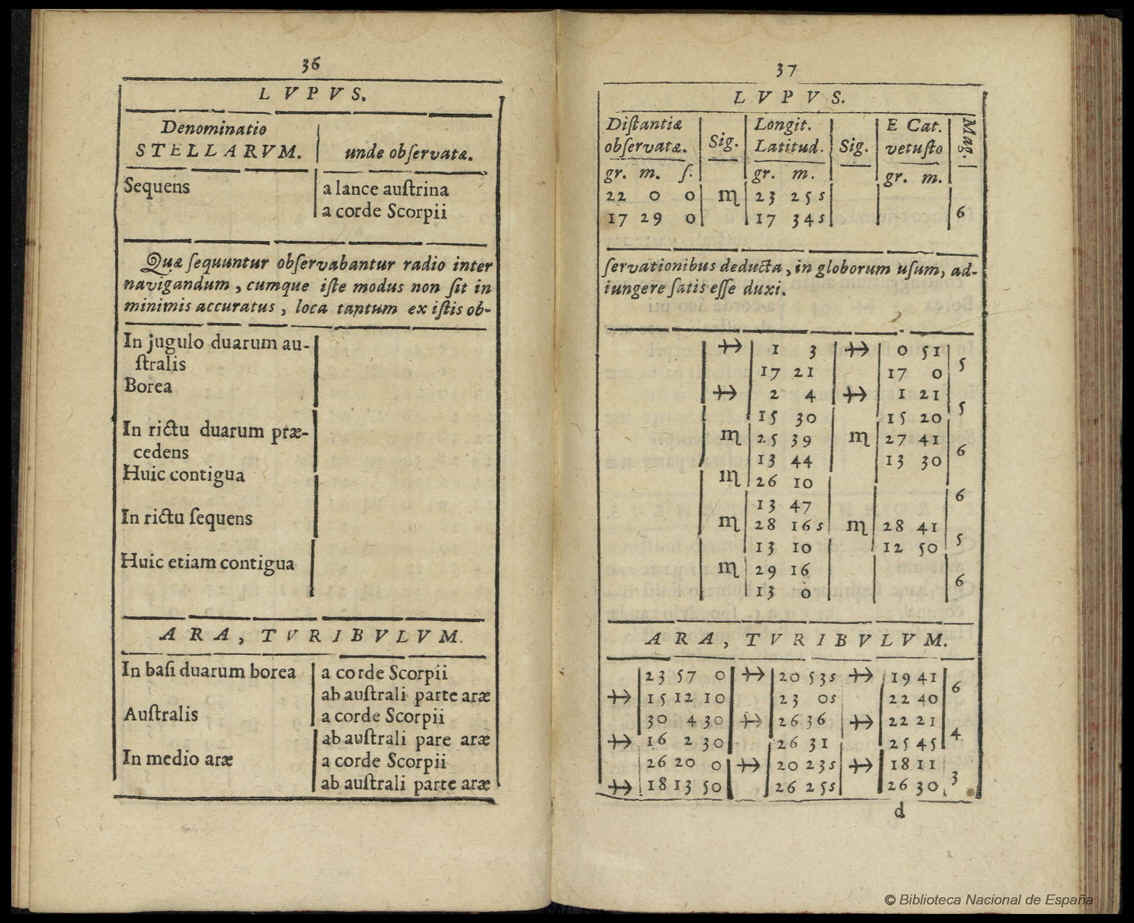 36
L V P V S.
Denominatio
STELLARVM. unde observatæ.
Sequens a lance austrina
a corde Scorpii
Quæ sequuntur observabantur radio inter
navigandum, cumque iste modus non sit in
minimis accuratus, loca tantum ex istis ob-
In jugulo duarum au-
stralis
Borea
In rictu duarum præ-
cedens
Huic contigua
In rictu sequens
Huic etiam contigua
A R A, T V R I B V L V M.
In basi duarum borea a corde Scorpii
ab australi parte aræ
Australis a corde Scorpii
ab australi pare aræ
In medio aræ a corde Scorpii
ab australi parte aræ
37
L V P V S.
Distantiæ Longit. E Cat. Mag.
observatæ. Sig. Latitud. Sig. vetusto
gr. m. s. gr. m. gr. m.
22 0 0 ♏ 23 25 s
17 29 0 17 34 s 6
servationibus deducta, in globorum usum, ad-
iungere satis esse duxi.
♐ 1 3 ♐ 0 51
17 21 17 0 5
♐ 2 4 ♐ 1 21
15 30 15 20 5
♏ 25 39 ♏ 27 41
13 44 13 30 6
♏ 26 10
13 47 6
♏ 28 16 s ♏ 28 41
13 10 12 50 5
♏ 29 16
13 0 6
A R A, T V R I B V L V M.
23 57 0 ♐ 20 53 s ♐ 19 41
♐ 15 12 10 23 0 s 22 40 6
30 4 30 ♐ 26 36 ♐ 22 21
♐ 16 2 30 26 31 25 45 4
26 20 0 ♐ 20 23 s ♐ 18 11
♐ 18 13 50 26 25 s 26 30 3
d
© Biblioteca Nacional de España